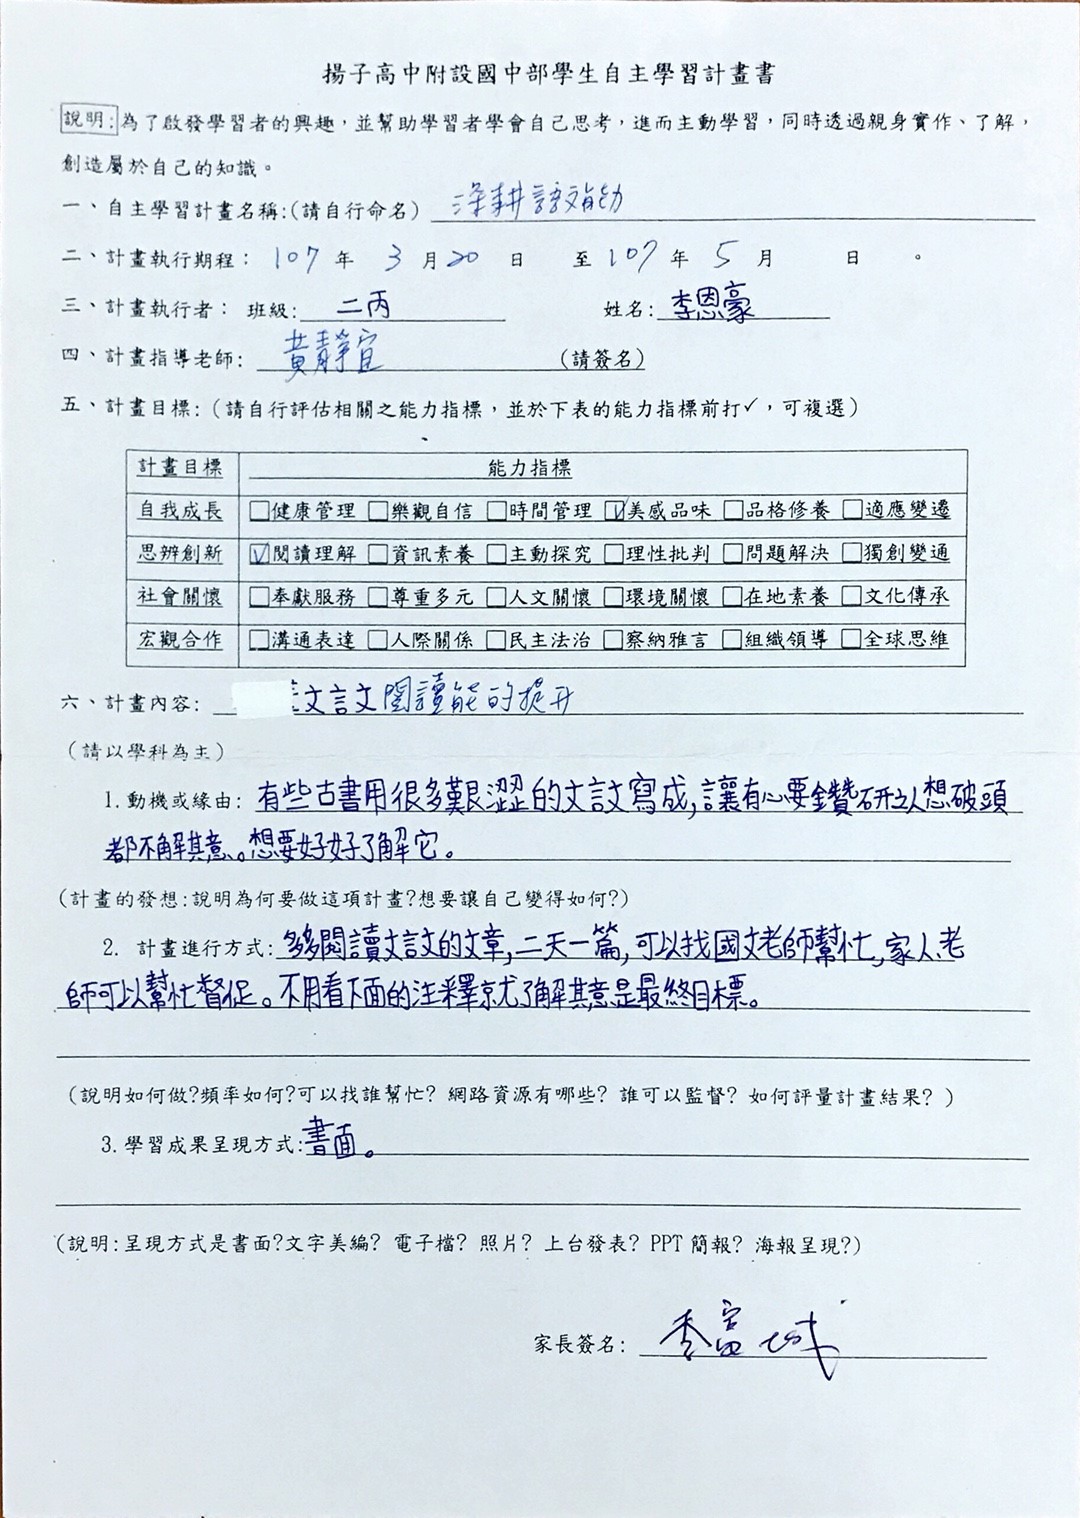 揚子高中附設國中部學生自主學習計畫書
說明:為了啟發學習者的興趣,並幫助學習者學會自己思考,進而主動學習,同時透過親身實作、了解,
創造屬於自己的知識。
一、自主學習計畫名稱:(請自行命名) 深耕語文能力
二、計畫執行期程: 107 年 3 月 20 日 至 107 年 5 月 日 。
三、計畫執行者: 班級: 二丙 姓名: 李恩豪
四、計畫指導老師: 黃靜宜 (請簽名)
五、計畫目標:(請自行評估相關之能力指標,並於下表的能力指標前打✓,可複選)
計畫目標 能力指標
自我成長 □健康管理 □樂觀自信 □時間管理 ☑美感品味 □品格修養 □適應變遷
思辨創新 ☑閱讀理解 □資訊素養 □主動探究 □理性批判 □問題解決 □獨創變通
社會關懷 □奉獻服務 □尊重多元 □人文關懷 □環境關懷 □在地素養 □文化傳承
宏觀合作 □溝通表達 □人際關係 □民主法治 □察納雅言 □組織領導 □全球思維
六、計畫內容: 文言文閱讀能的提升
(請以學科為主)
1.動機或緣由: 有些古書用很多艱澀的文言文寫成,讓有心要鑽研之人想破頭
都不解其意。想要好好了解它。
(計畫的發想:說明為何要做這項計畫?想要讓自己變得如何?)
2. 計畫進行方式: 多多閱讀文言文的文章,二天一篇,可以找國文老師幫忙,家人、老
師可以幫忙督促。不用看下面的注釋就了解其意是最終目標。
(說明如何做?頻率如何?可以找誰幫忙? 網路資源有哪些? 誰可以監督? 如何評量計畫結果? )
3.學習成果呈現方式:書面。
(說明:呈現方式是書面?文字美編? 電子檔? 照片? 上台發表? PPT 簡報? 海報呈現?)
家長簽名: 李富城